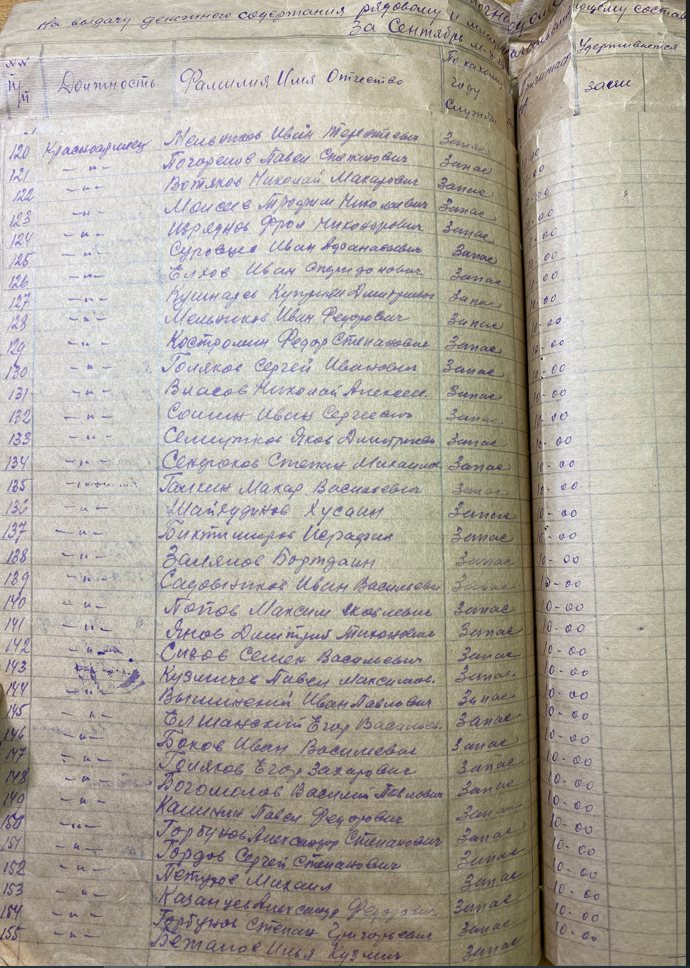 На выдачу денежного содержания рядовому и
За Сентябрь м-ц
№№ п/п Должность Фамилия Имя Отчество По какому году службы Удерживается
заем
120 Красноармеец Мельников Иван Терентьевич Запас
121 -"- Погорелов Павел Степанович Запас
122 -"- Вотяков Николай Макарович Запас
123 -"- Моисеев Трофим Николаевич Запас
124 -"- Фрол Никонорович Запас
125 -"- Суровцев Иван Афанасьевич Запас
126 -"- Елхов Иван Спиридонович Запас
127 -"- Кушнарев Куприян Дмитриевич Запас
128 -"- Мельников Иван Федорович Запас 10-00
129 -"- Костромин Федор Степанович Запас 10-00
130 -"- Поляков Сергей Иванович Запас 10-00
131 -"- Власов Николай Алексеев. Запас 10-00
132 -"- Сомин Иван Сергеевич Запас 10-00
133 -"- Яков Дмитриевич Запас 10-00
134 -"- Сендюков Степан Михаил. Запас 10-00
135 Галкин Макар Васильевич Запас 10-00
136 -"- Шайхудинов Хусаин Запас 10-00
137 -"- Биктимиров Запас 10-00
138 -"- Залялов Запас 10-00
139 -"- Садовников Иван Васильевич Запас 10-00
140 -"- Попов Максим Яковлевич Запас 10-00
141 -"- Янов Дмитрий Тихонович Запас 10-00
142 -"- Сивов Семен Васильевич Запас 10-00
143 Кузмичев Павел Максимов. Запас 10-00
144 Вышинский Иван Павлович Запас 10-00
145 -"- Елшанский Егор Васильев. Запас 10-00
146 -"- Боков Иван Васильевич Запас 10-00
147 -"- Поляков Егор Захарович Запас 10-00
148 -"- Богомолов Василий Павлович Запас 10-00
149 -"- Калинин Павел Федорович Запас 10-00
150 -"- Горбунов Александр Степанович Запас 10-00
151 -"- Гордов Сергей Степанович Запас 10-00
152 -"- Петухов Михаил Запас 10-00
153 -"- Казанцев Александр Федорович Запас 10-00
154 -"- Горбунов Степан Григорьевич Запас 10-00
155 -"- Илья Кузмич Запас 10-00